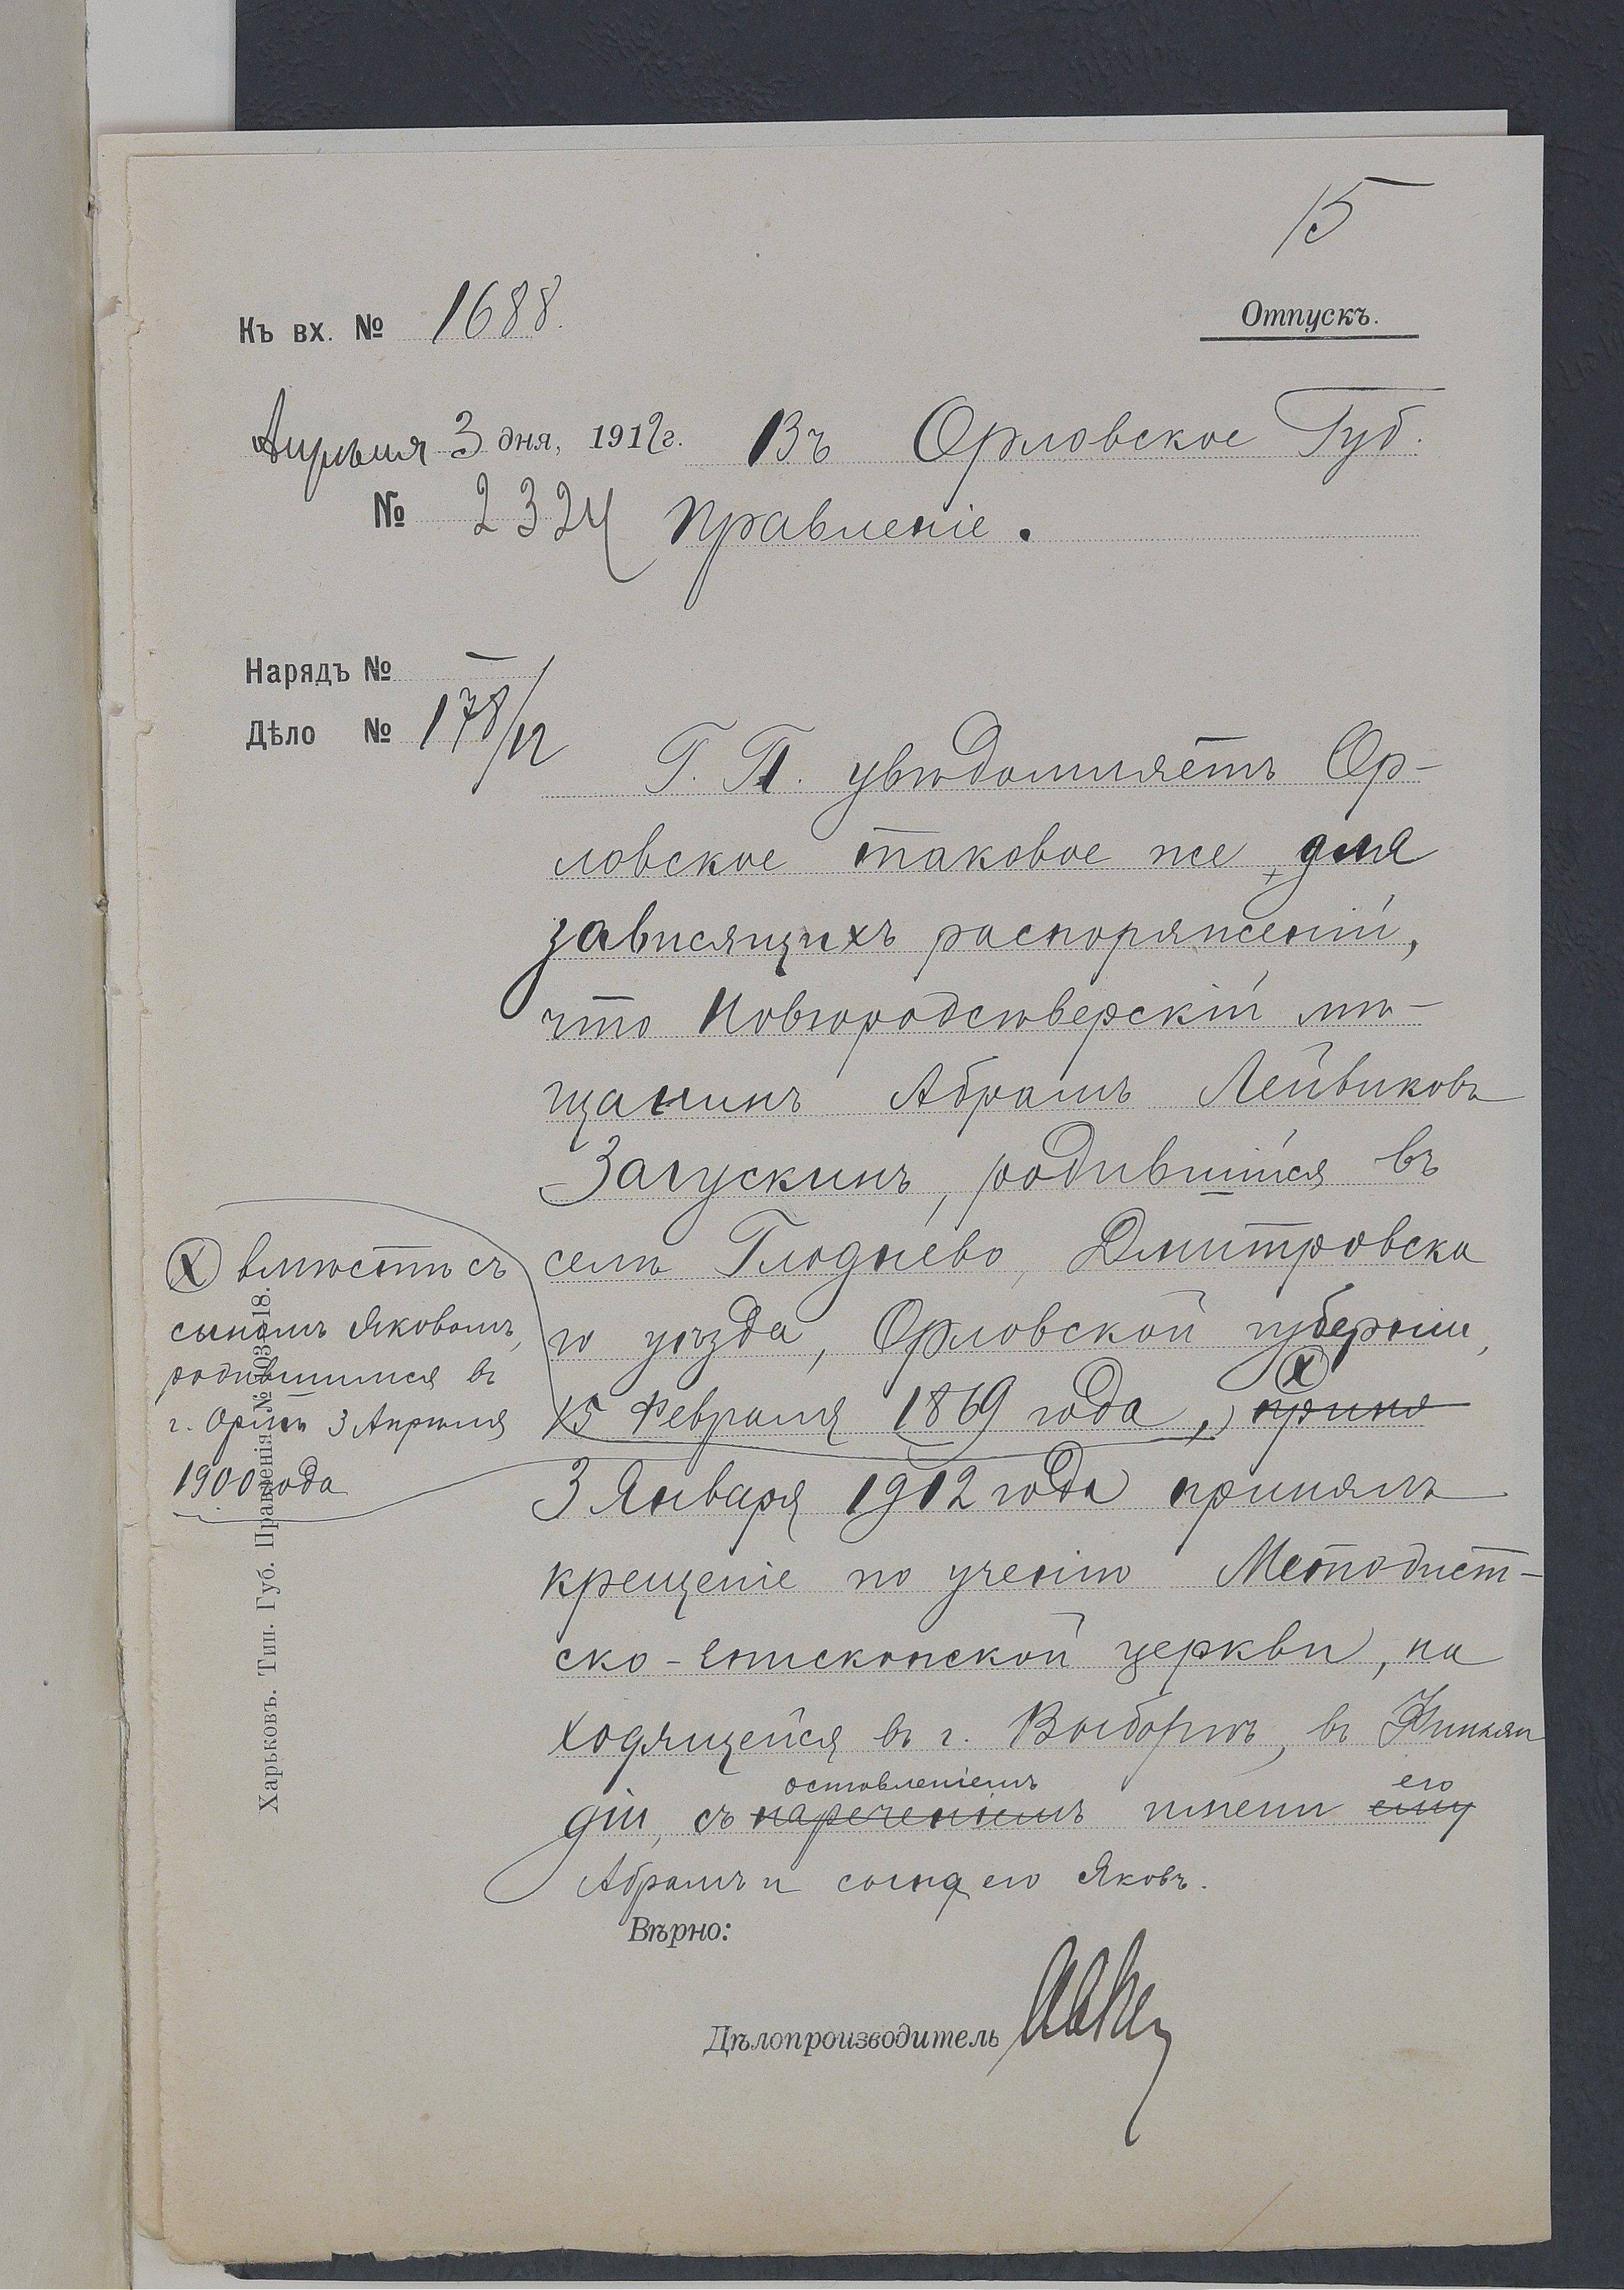 15
Къ вх. № 1688.
Отпускъ.
Апрѣля 3 дня, 1912 г. Въ Орловское Губ.
№ 2324 Правленіе.
Нарядъ № —
Дѣло № 178/12
Г. П. увѣдомляетъ Ор-
ловское таковое же для
зависящихъ распоряженій,
что Новгородсѣверскій мѣ-
щанинъ Абрамъ Лейвиковъ
Загускинъ, родившійся въ
селѣ Глюднево, Дмитровска
го уѣзда, Орловской губерніи,
15 Февраля 1869 года, (X) приня
(X) вмѣстѣ съ
сыномъ Яковомъ,
родившимся въ
г. Орлѣ 3 Апрѣля
1900 года
3 Января 1912 года принялъ
крещеніе по ученію Методист-
ско-Епископской церкви, на
ходящейся въ г. Выборгѣ, въ Финлян
оставленіемъ его
діи, съ нареченіемъ имени ему
Абрамъ и сына его Яковъ.
Вѣрно:
Дѣлопроизводитель
Харьковъ. Тип. Губ. Правленія № 103—18.